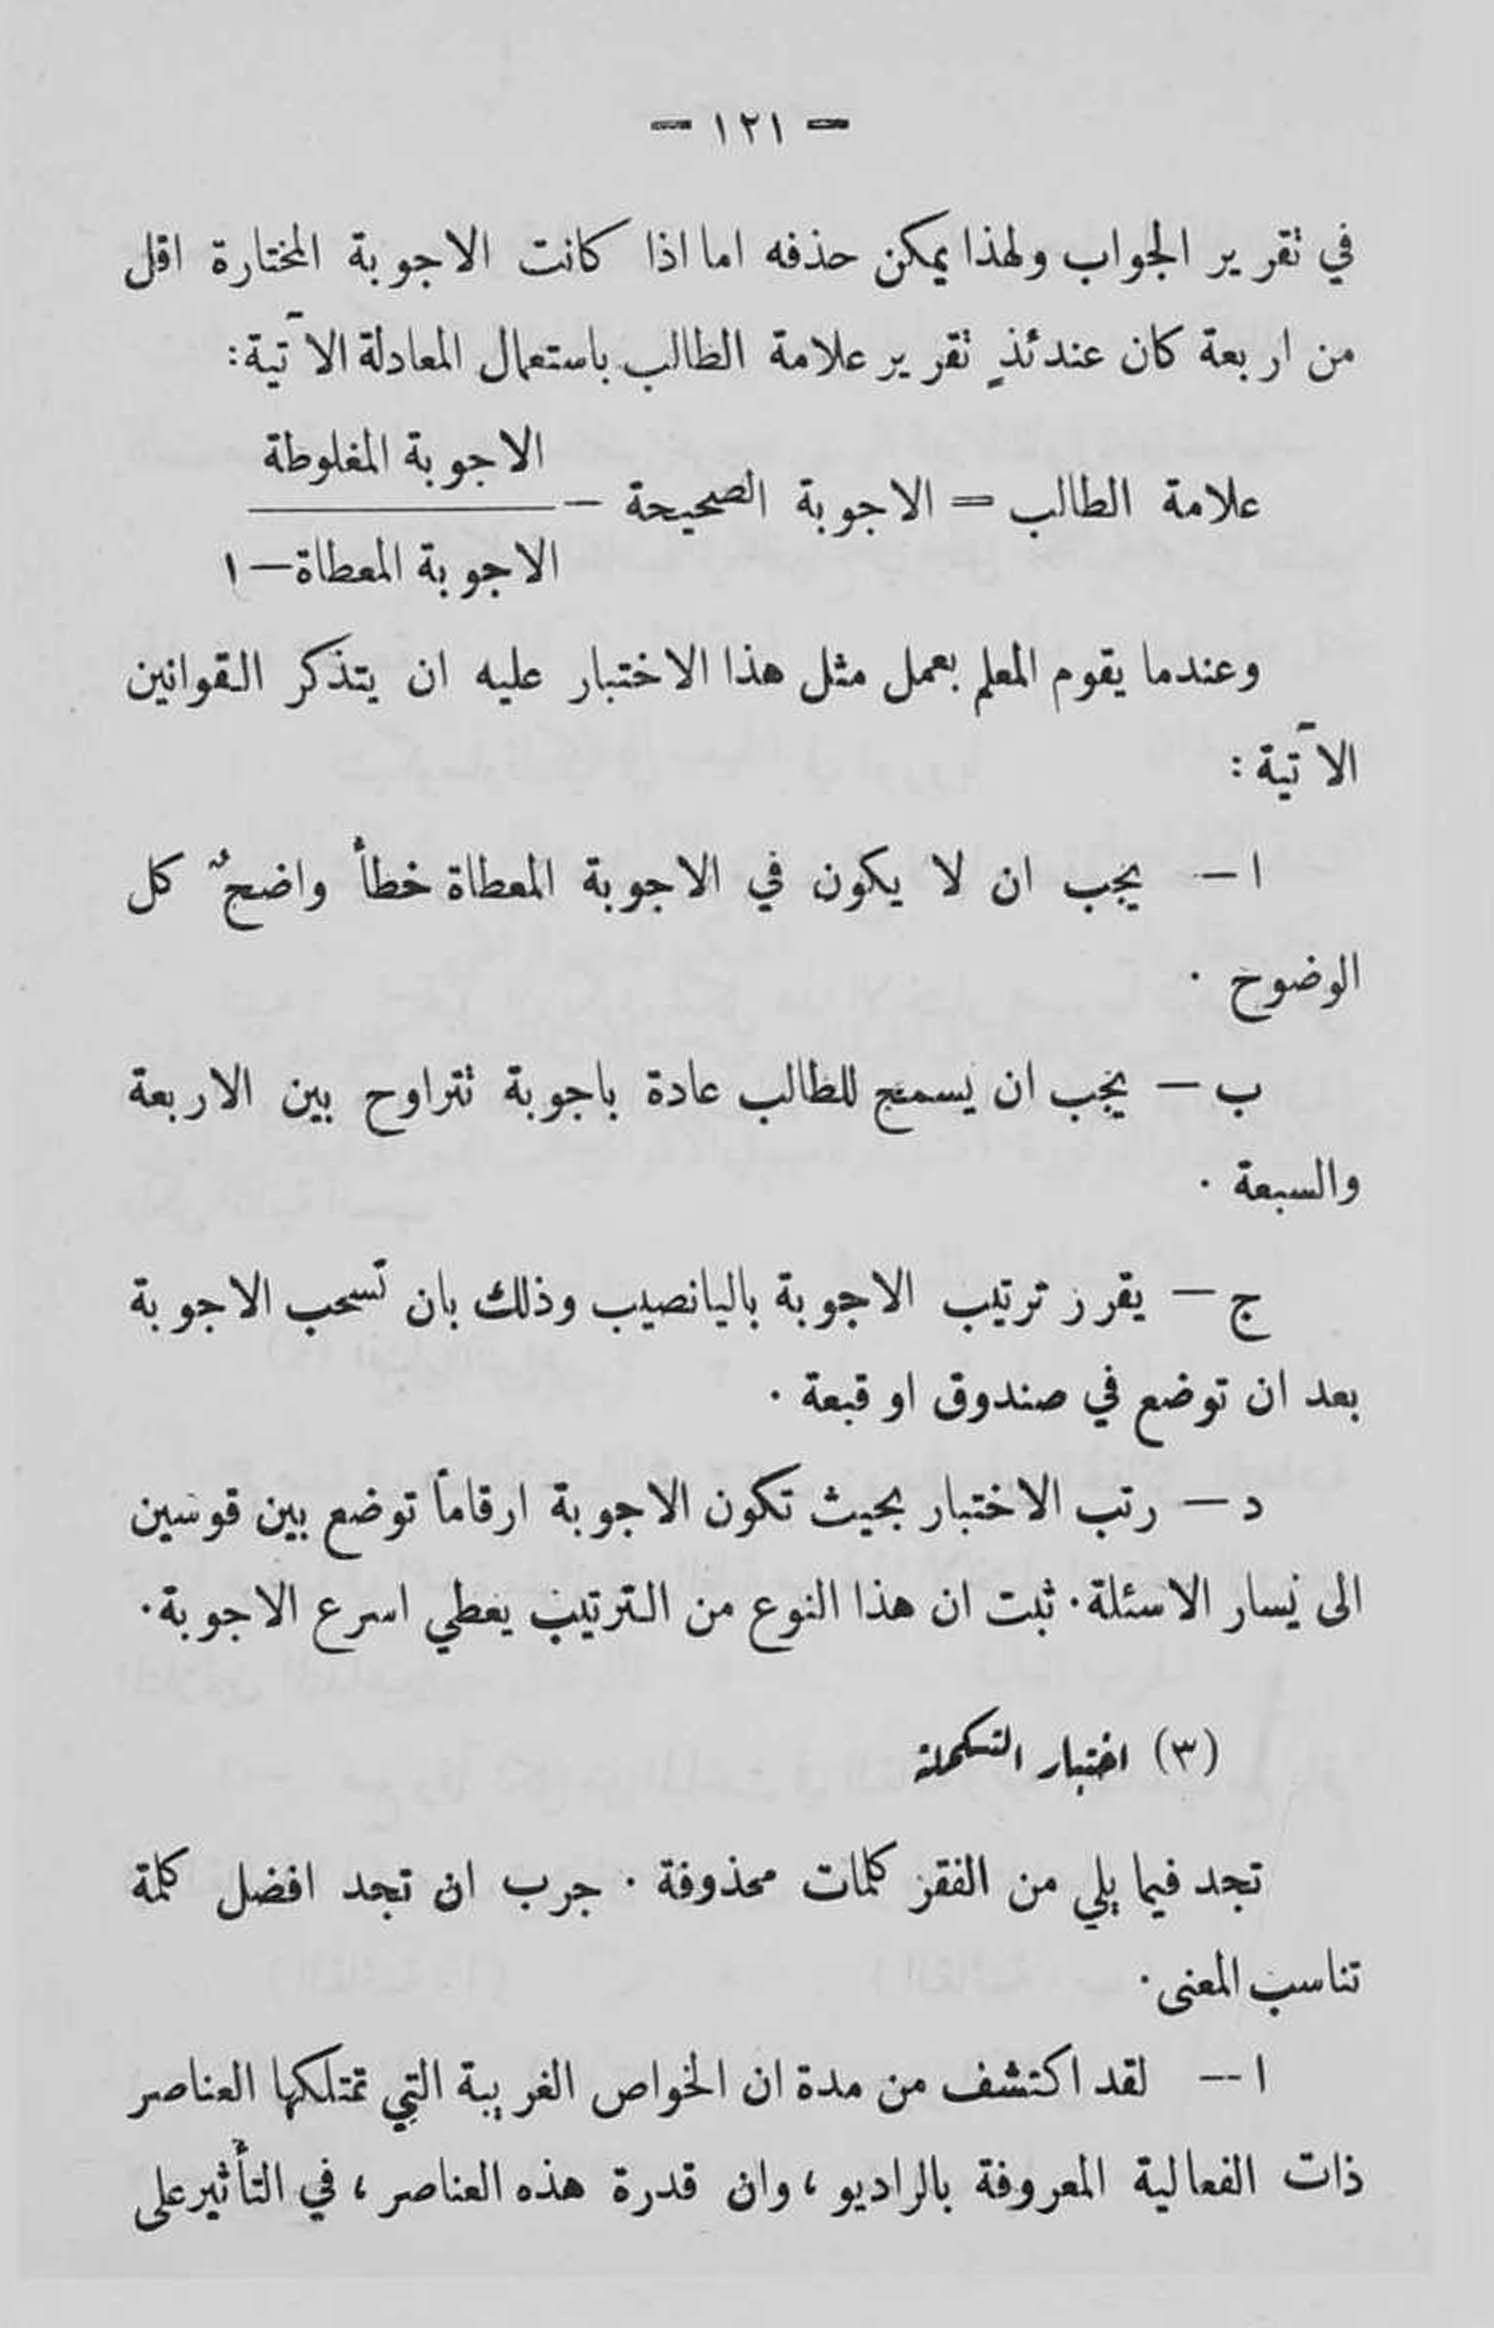 - ١٢١ -
في تقرير الجواب ولهذا يمكن حذفه اما اذا كانت الاجوبة المختارة اقل
من اربعة كان عندئذٍ تقرير علامة الطالب باستعمال المعادلة الآتية:
الاجوبة المغلوطة
علامة الطالب = الاجوبة الصحيحة -
الاجوبة المعطاة - ١
وعندما يقوم المعلم بعمل مثل هذا الاختبار عليه ان يتذكر القوانين
الآتية:
ا - يجب ان لا يكون في الاجوبة المعطاة خطأ واضحٌ كل
الوضوح .
ب - يجب ان يسمح للطالب عادة باجوبة تتراوح بين الاربعة
والسبعة .
ج - يقرر ترتيب الاجوبة باليانصيب وذلك بان تسحب الاجوبة
بعد ان توضع في صندوق او قبعة .
د - رتب الاختبار بحيث تكون الاجوبة ارقاماً توضع بين قوسين
الى يسار الاسئلة. ثبت ان هذا النوع من الترتيب يعطي اسرع الاجوبة.
(٣) اختبار التكملة
تجد فيما يلي من الفقر كلمات محذوفة . جرب ان تجد افضل كلمة
تناسب المعنى.
ا -- لقد اكتشف من مدة ان الخواص الغريبة التي تمتلكها العناصر
ذات الفعالية المعروفة بالراديو ، وان قدرة هذه العناصر ، في التأثير على